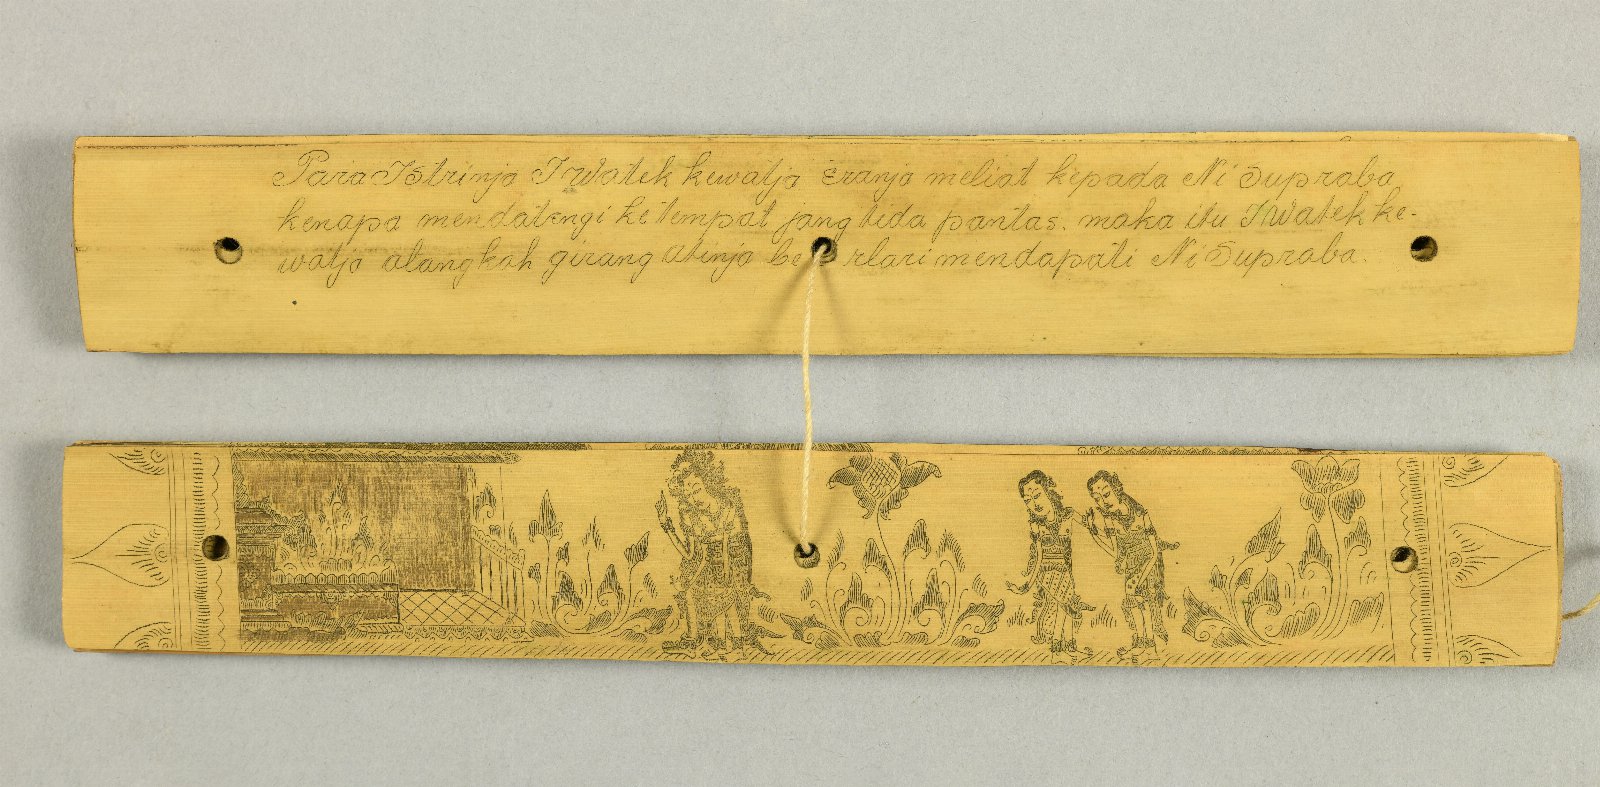 Para Istrinja I Watek kewatja eranja meliat kepada Ni Supraba
kenapa mendatengi ketempat jang tida pantas. maka itu I Watek ke-
watja alangkah girang atinja be rlari mendapati Ni Supraba.